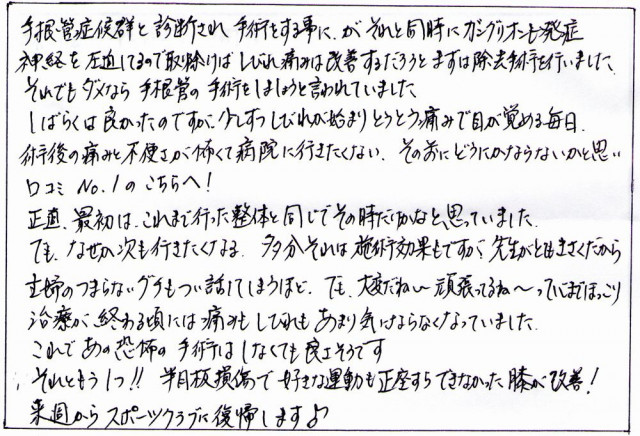 手根管症候群と診断され手術をする事に、が それと同時にガングリオンも発症
神経を圧迫してるので取り除けばしびれ痛みは改善するだろうとまずは除去手術を行いました。
それでもダメなら手根管の手術をしましょうと言われていました
しばらくは良かったのですが、少しずつしびれが始まりとうとう痛みで目が覚める毎日、
術後の痛みと不便さが怖くて病院に行きたくない、その前にどうにかならないかと思い
口コミNo.1のこちらへ!
正直、最初は、これまで行った整体と同じでその時だけかなと思っていました。
でも、なぜか次も行きたくなる、多分それは施術効果もですが、先生がとてもきさくだから
主婦のつまらないグチもつい話してしまうほど、でも、大変だね〜頑張ってるね〜っていつもほっこり
治療が終わる頃には痛みもしびれもあまり気にならなくなっていました。
これであの恐怖の手術はしなくても良さそうです
それともう1つ!! 半月板損傷で好きな運動も正座すらできなかった膝が改善!
来週からスポーツクラブに復帰します♪